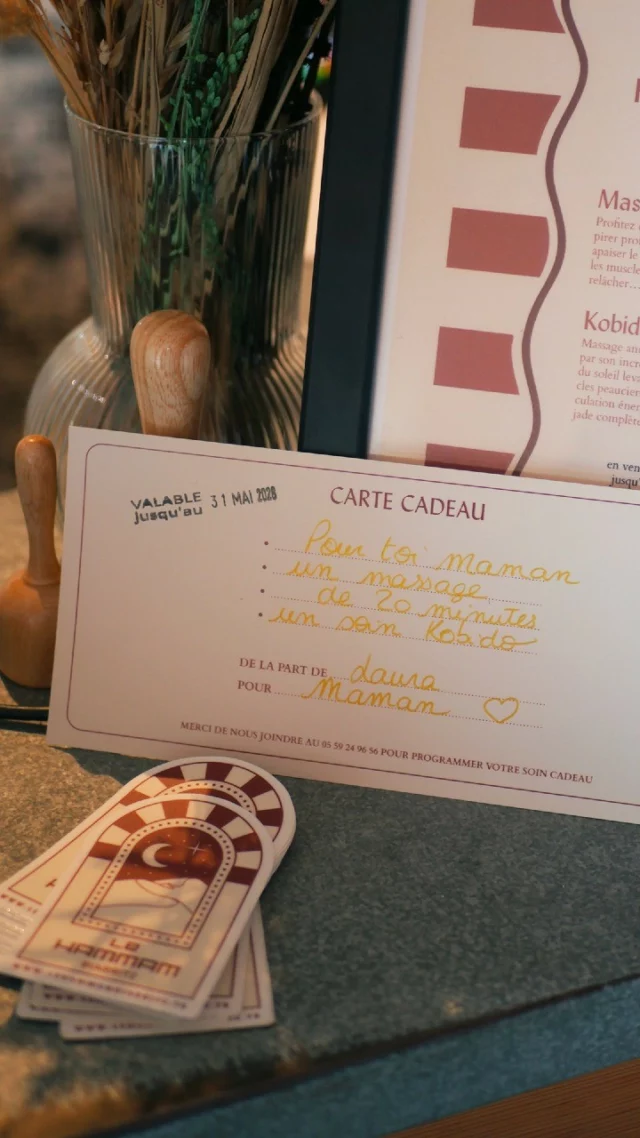 Mas
Profitez
pirer pro
apaiser le
les muscle
relâcher...
Kobid
Massage an
par son incr
du soleil lev
cles peaucier
culation éner
jade complèt
en ven
jusqu'
VALABLE 31 MAI 2026
jusqu'au
CARTE CADEAU
Pour toi maman
un massage
de 20 minutes
un soin Kobido
DE LA PART DE Laura
POUR Maman
MERCI DE NOUS JOINDRE AU 05 59 24 96 56 POUR PROGRAMMER VOTRE SOIN CADEAU
Le
HAMMAM